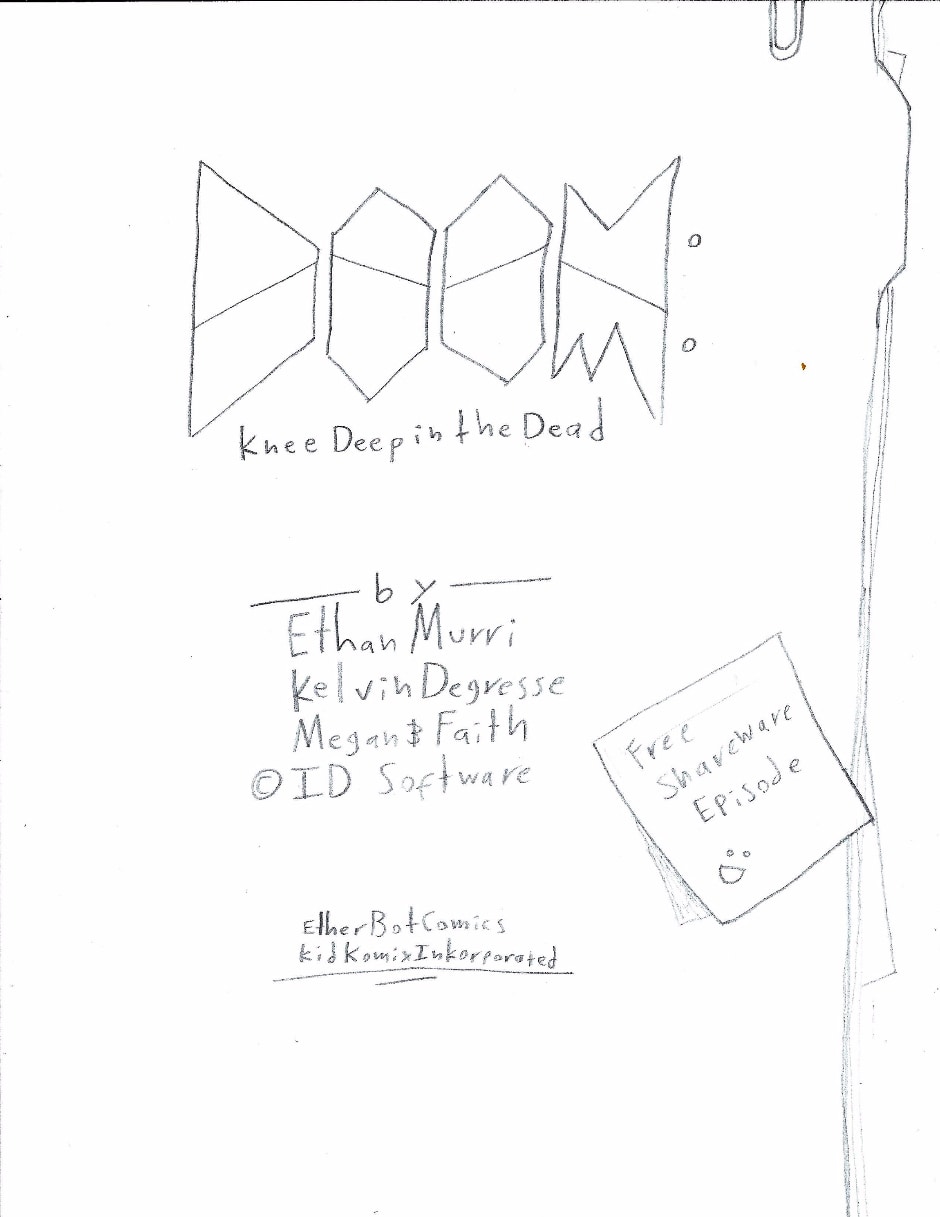 DOOM:
Knee Deep in the Dead
by
Ethan Murri
Kelvin Degresse
Megan $ Faith
© ID Software
Free
Shareware
Episode
EtherBotComics
KidKomixInkorporated